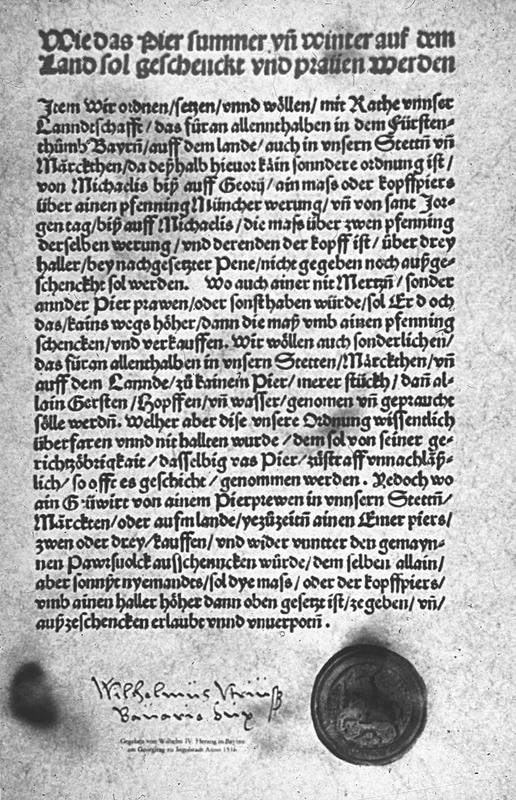 Wie das Pier summer vñ winter auf dem
Land sol geschenckt vnd prauen werden
Item Wir ordnen/setzen/vnnd wöllen/ mit Rathe vnnser
Lanndtschafft/ das füran allennthalben in dem Fürsten-
thůmb Bayrñ/auff dem lande/auch in vnsern Stettñ vñ
Märckthen/da deßhalb hieuor kain sonndere ordnung ist/
von Michaelis biß auff Georij/ain mass oder kopffpiers
über ainen pfenning Müncher werung/vñ von sant Jor-
gen tag/biß auff Michaelis/die mass über zwen pfenning
derselben werung/vnd derenden der kopff ist/über drey
haller/bey nachgesetzter Pene/nicht gegeben noch außge-
schenckht sol werden. Wo auch ainer nit Mertzñ/sonder
annder Pier prawen/oder sonst haben würde/sol Er d och
das/kains wegs höher/dann die maß vmb ainen pfenning
schencken/vnd verkauffen. Wir wöllen auch sonderlichen/
das füran allenthalben in vnsern Stetten/Märckthen/vñ
auff dem Lannde/zů kainem Pier/merer stückh/dañ al-
lain Gersten/Hopffen/vñ wasser/genomen vñ gepraucht
sölle werdñ. Welher aber dise vnsere Ordnung wissentlich
überfaren vnnd nie hallten wurde/dem sol von seiner ge-
richtzöbrigkait/dasselbig vas Pier/zůstraff vnnachläß-
lich/so offt es geschicht/genommen werden. Yedoch wo
ain Grüwirt von ainem Pierprewen in vnnsern Stettñ/
Märckten/oder aufm lande/yezůzeitñ ainen Emer piers/
zwen oder drey/kauffen/vnd wider vnntter den gemayn-
nen Pawrsuolck ausschenncken würde/dem selben allain/
aber sonnst nyemandts/sol dye mass/oder der kopffpiers/
vmb ainen haller höher dann oben gesetzt ist/zegeben/vñ/
außzeschencken erlaubt vnnd vnuerpotñ.
Wilhelmus
Bavarie Dux
Gegeben von Wilhelm IV. Herzog in Bayern
am Georgitag zu Ingolstadt Anno 1516